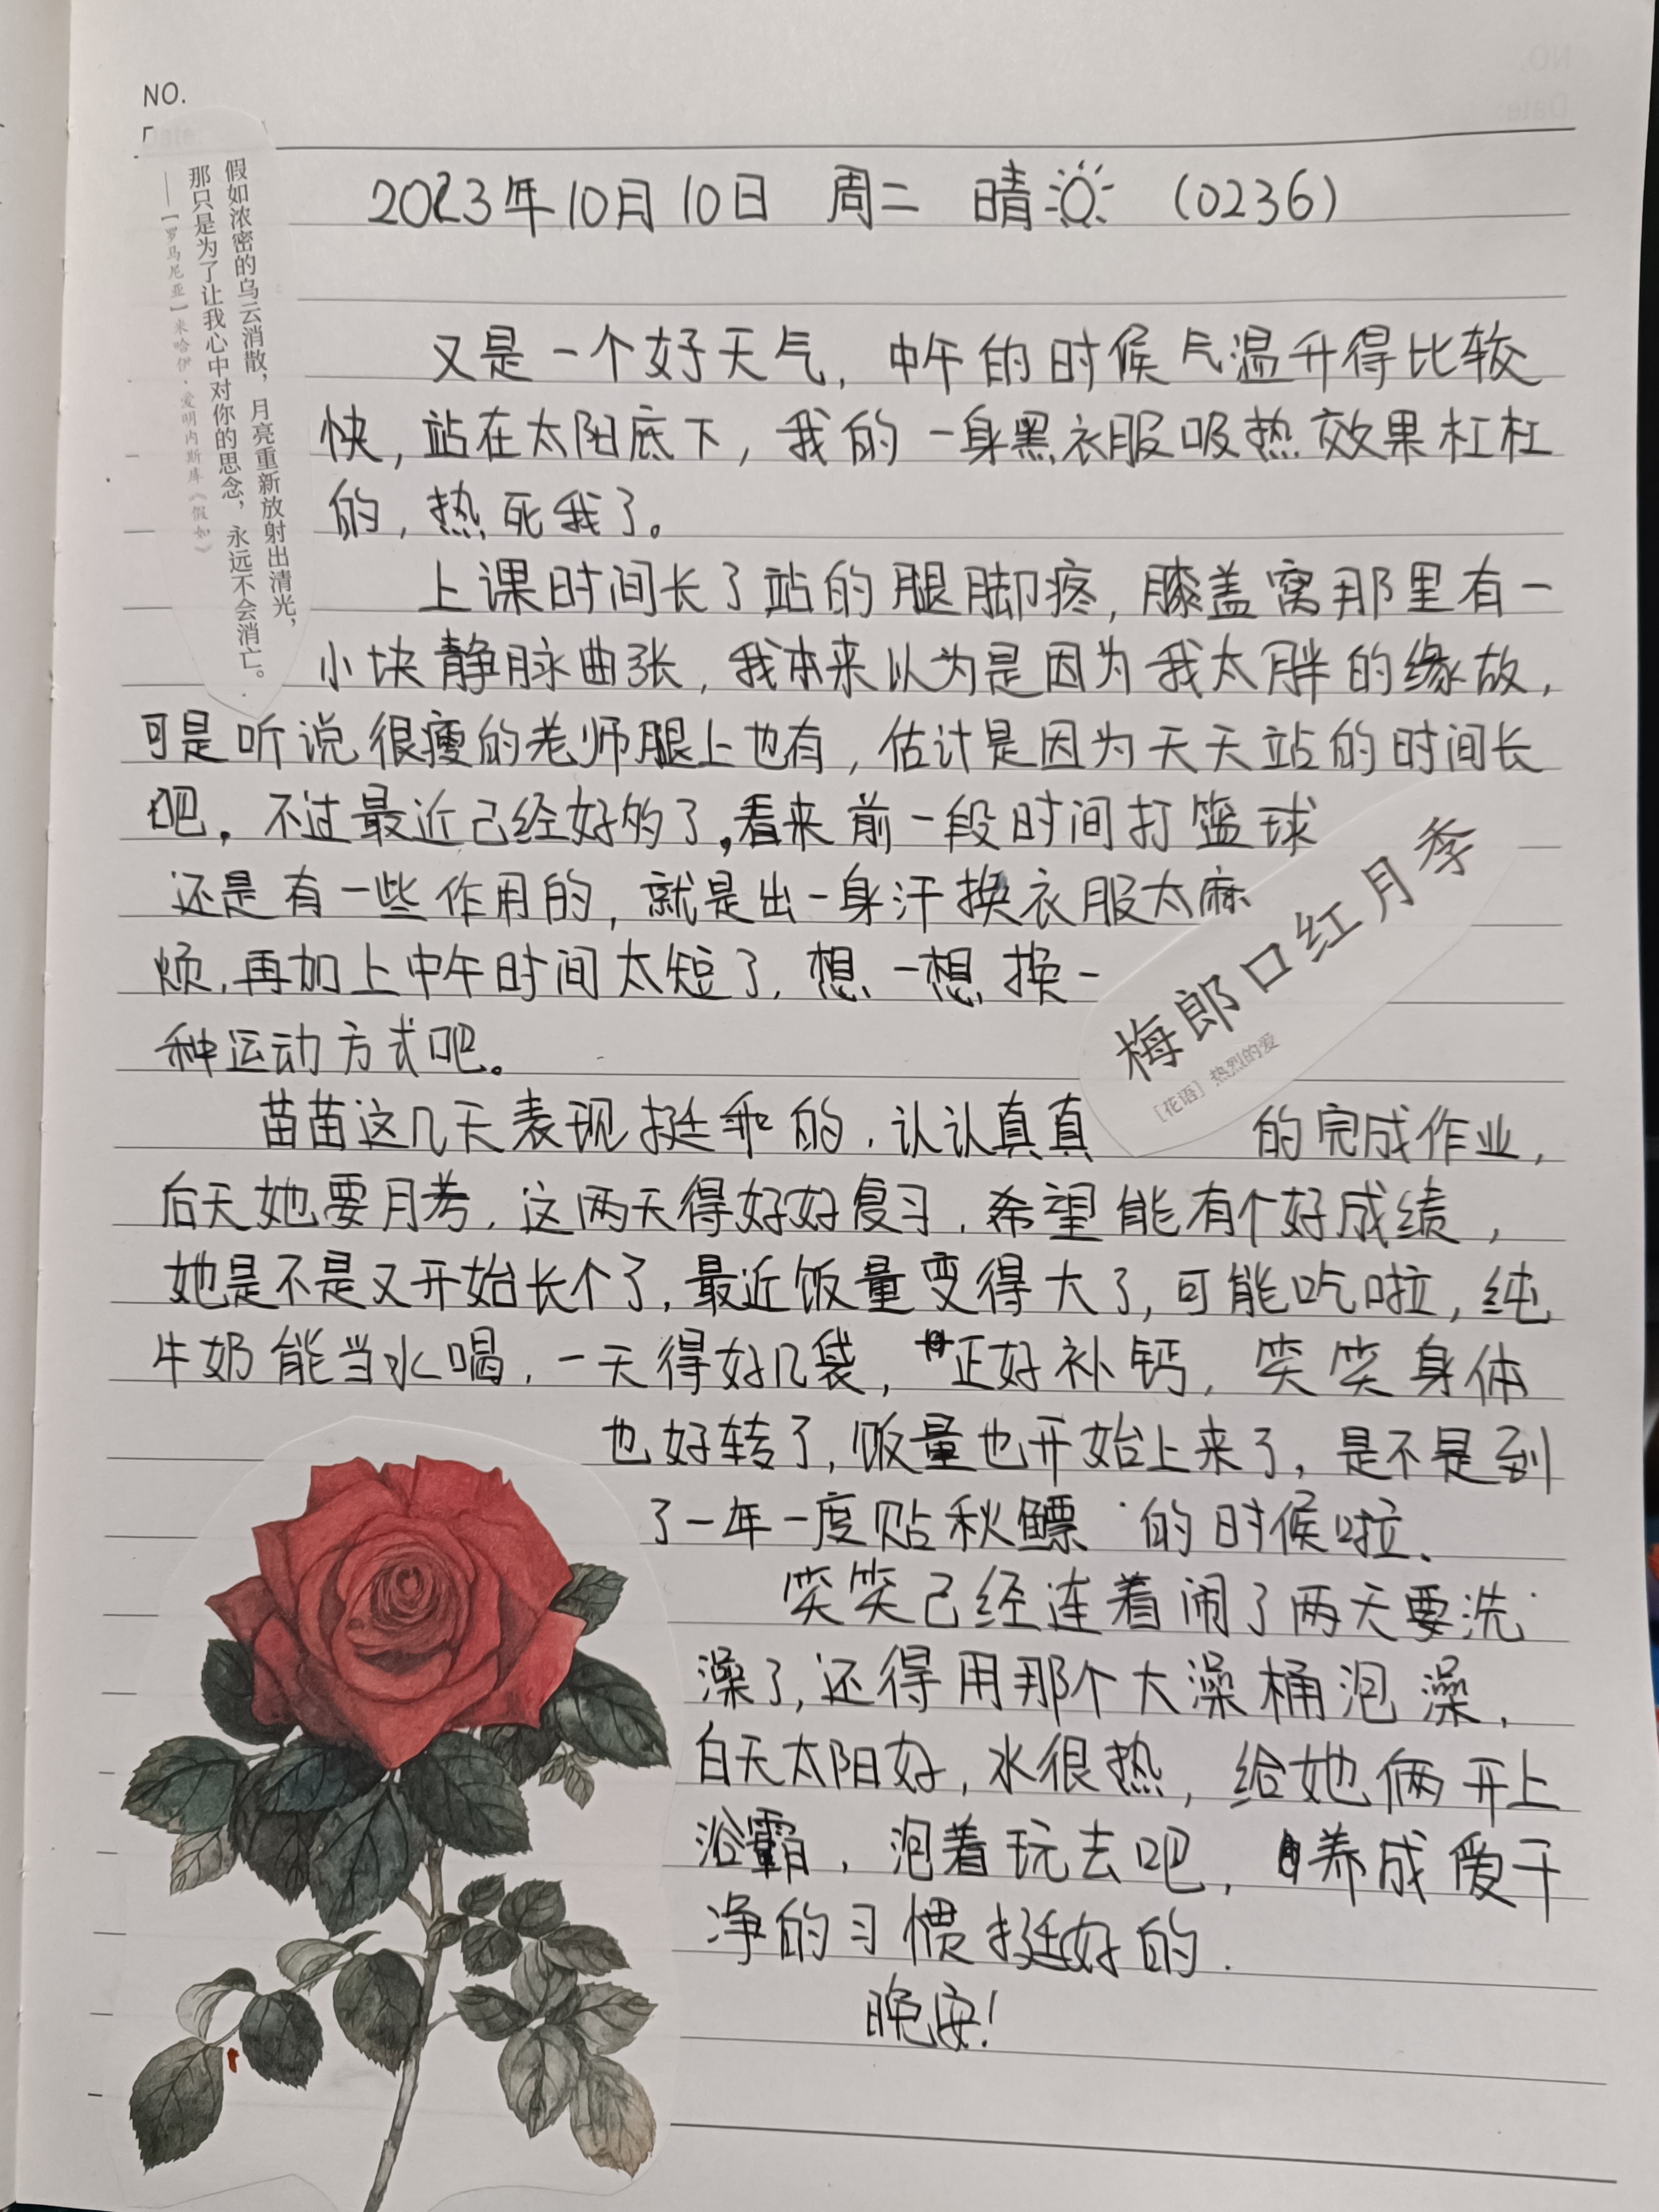 NO.
假如浓密的乌云消散，月亮重新放射出清光，
那只是为了让我心中对你的思念，永远不会消亡。
——【罗马尼亚】米哈伊·爱明内斯库《假如》
2023年10月10日 周二 晴 (0236)
又是一个好天气，中午的时候气温升得比较
快，站在太阳底下，我的一身黑衣服吸热效果杠杠
的，热死我了。
上课时间长了站的腿脚疼，膝盖窝那里有一
小块静脉曲张，我本来以为是因为我太胖的缘故，
可是听说很瘦的老师腿上也有，估计是因为天天站的时间长
吧。不过最近已经好多了，看来前一段时间打篮球
还是有一些作用的，就是出一身汗换衣服太麻
烦，再加上中午时间太短了，想一想换一
种运动方式吧。
苗苗这几天表现挺乖的，认认真真的完成作业，
后天她要月考，这两天得好好复习，希望能有个好成绩，
她是不是又开始长个了，最近饭量变得大了，可能吃啦，纯
牛奶能当水喝，一天得好几袋，正好补钙，笑笑身体
也好转了，饭量也开始上来了，是不是到
了一年一度贴秋鳔的时候啦.
笑笑已经连着闹了两天要洗
澡了，还得用那个大澡桶泡澡，
白天太阳好，水很热，给她俩开上
浴霸，泡着玩去吧，养成爱干
净的习惯挺好的.
晚安!
梅郎口红月季
[花语] 热烈的爱